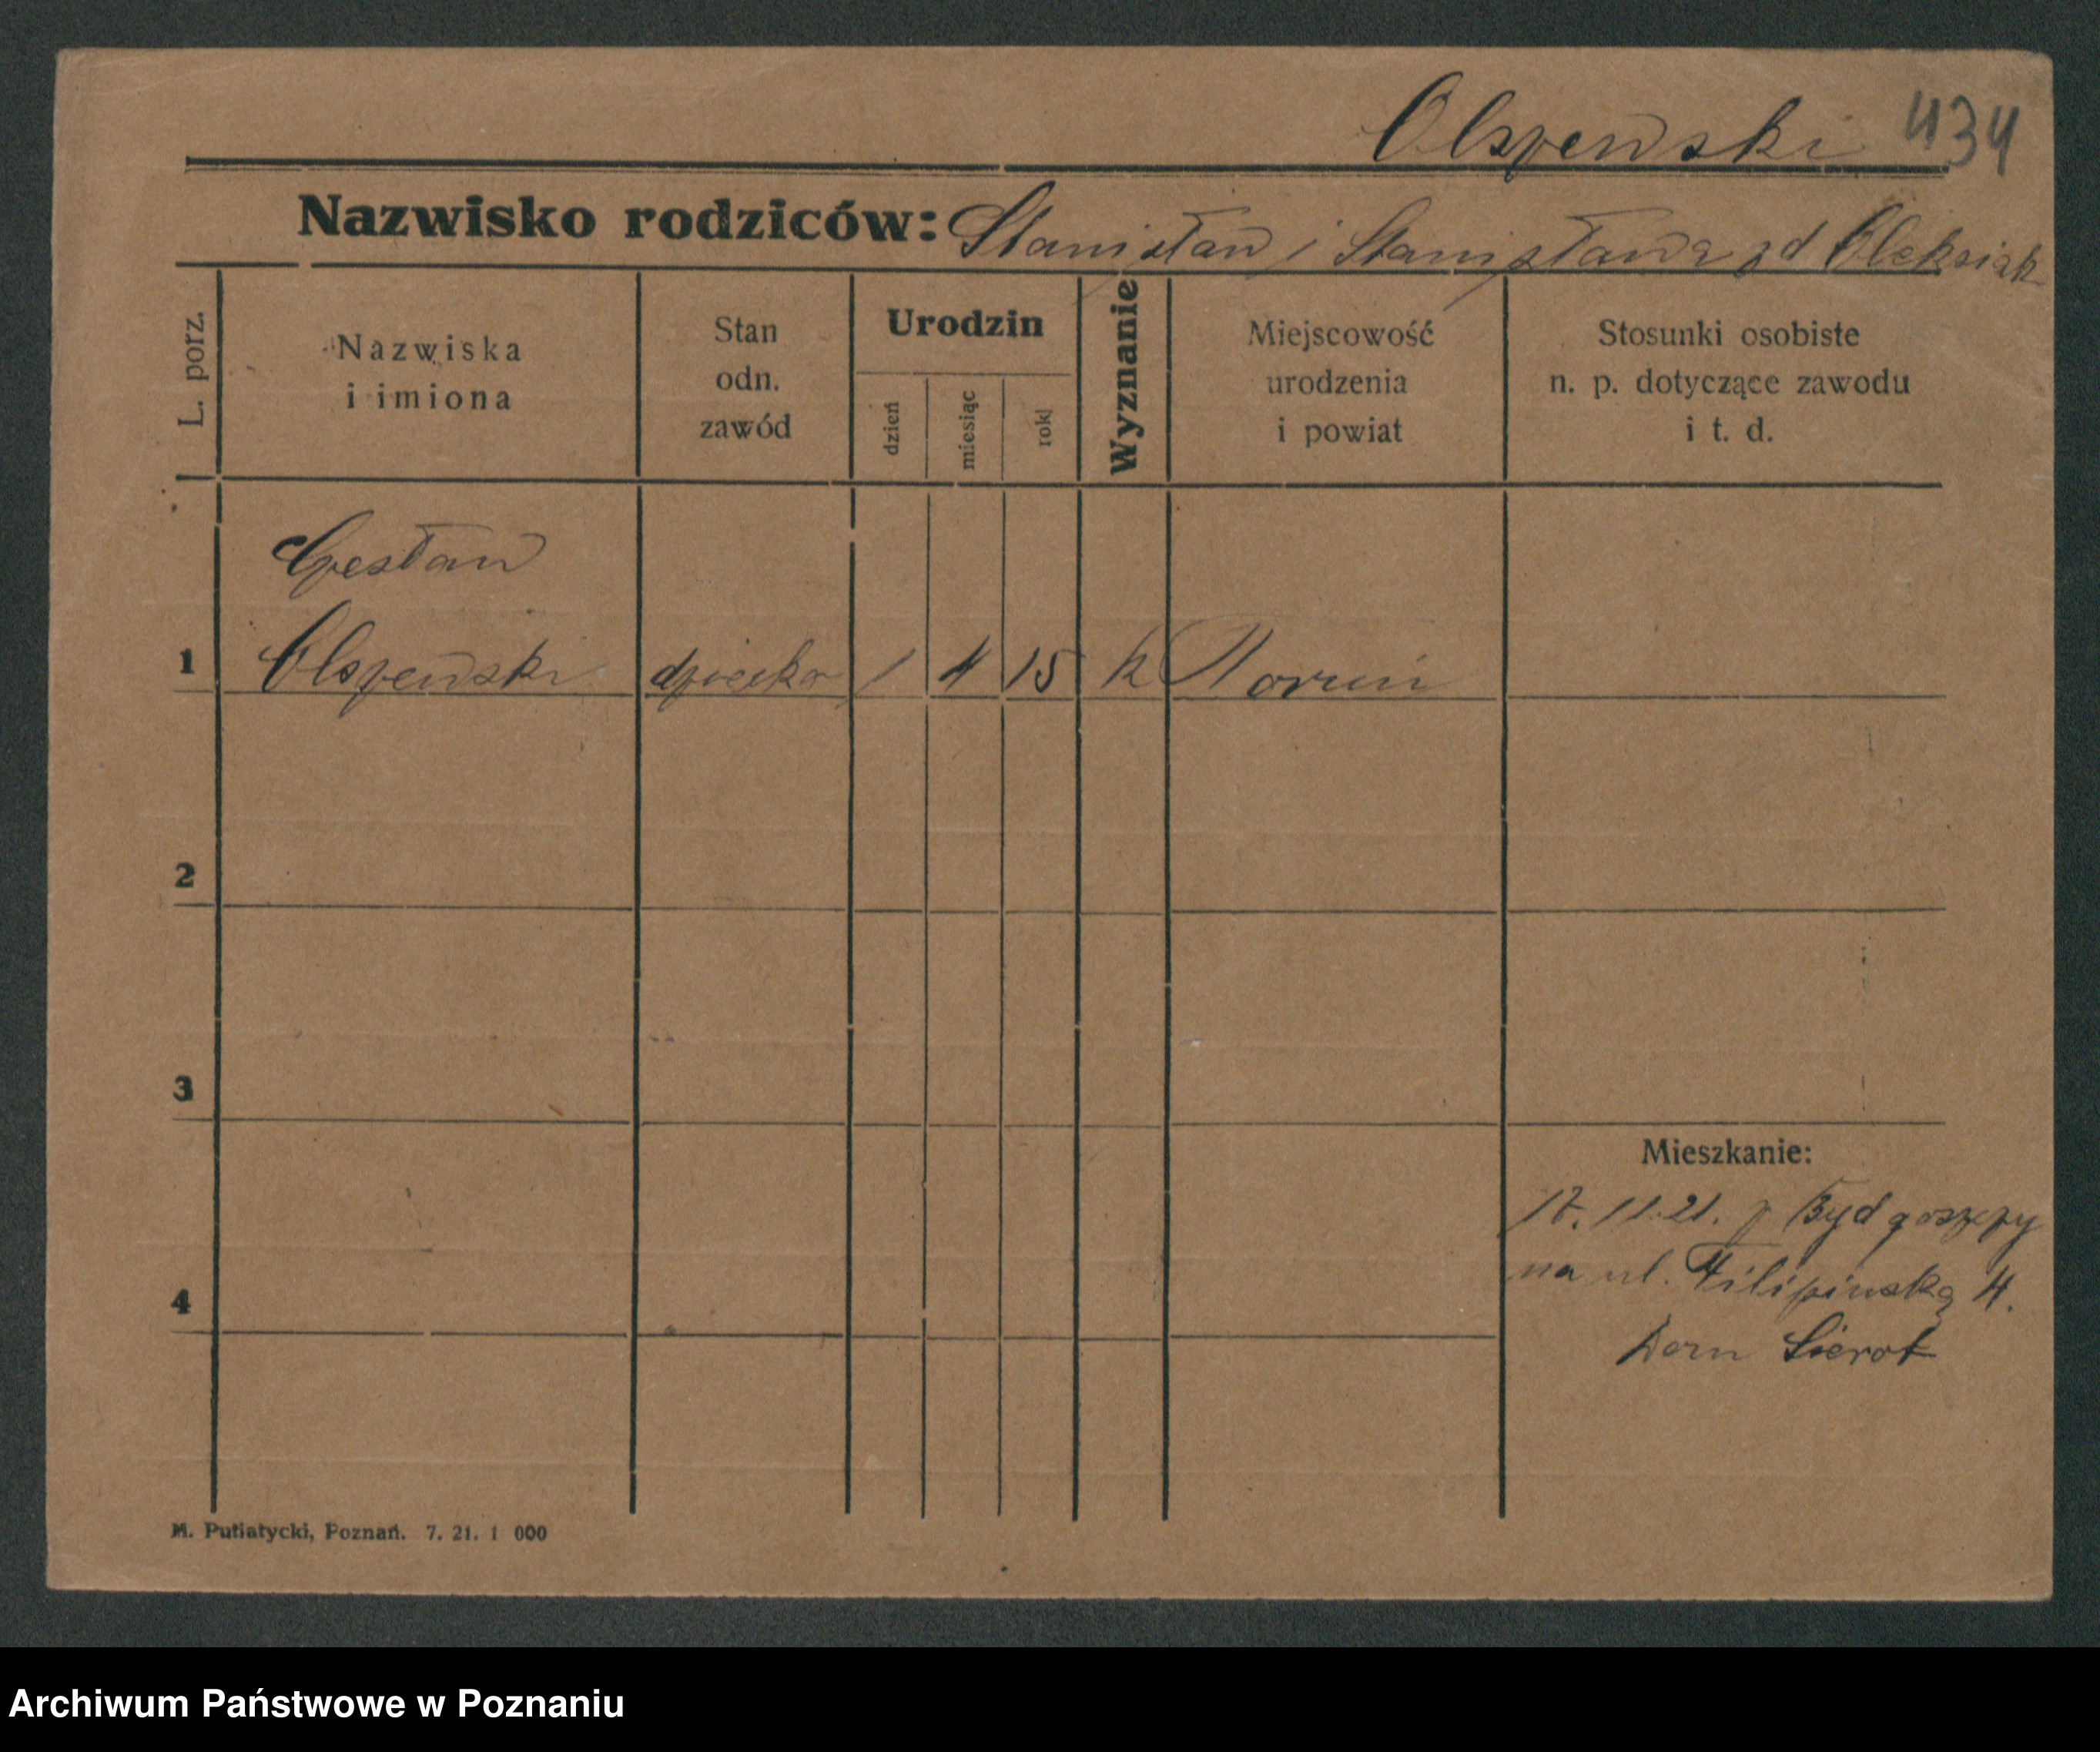 Olszewski 434
Nazwisko rodziców: Stanisław i Stanisława zd Oleksiak
L. porz.
Nazwiska
i imiona
Stan
odn.
zawód
Urodzin
dzień
miesiąc
rok
Wyznanie
Miejscowość
urodzenia
i powiat
Stosunki osobiste
n. p. dotyczące zawodu
i t. d.
Czesław
1 Olszewski dziecko 1 4 15 k Toruń
2
3
Mieszkanie:
17. 11. 21. z Bydgoszczy
na ul. Filipińską 4.
4
Dom Sierot
M. Putiatycki, Poznań. 7. 21. 1 000
Archiwum Państwowe w Poznaniu